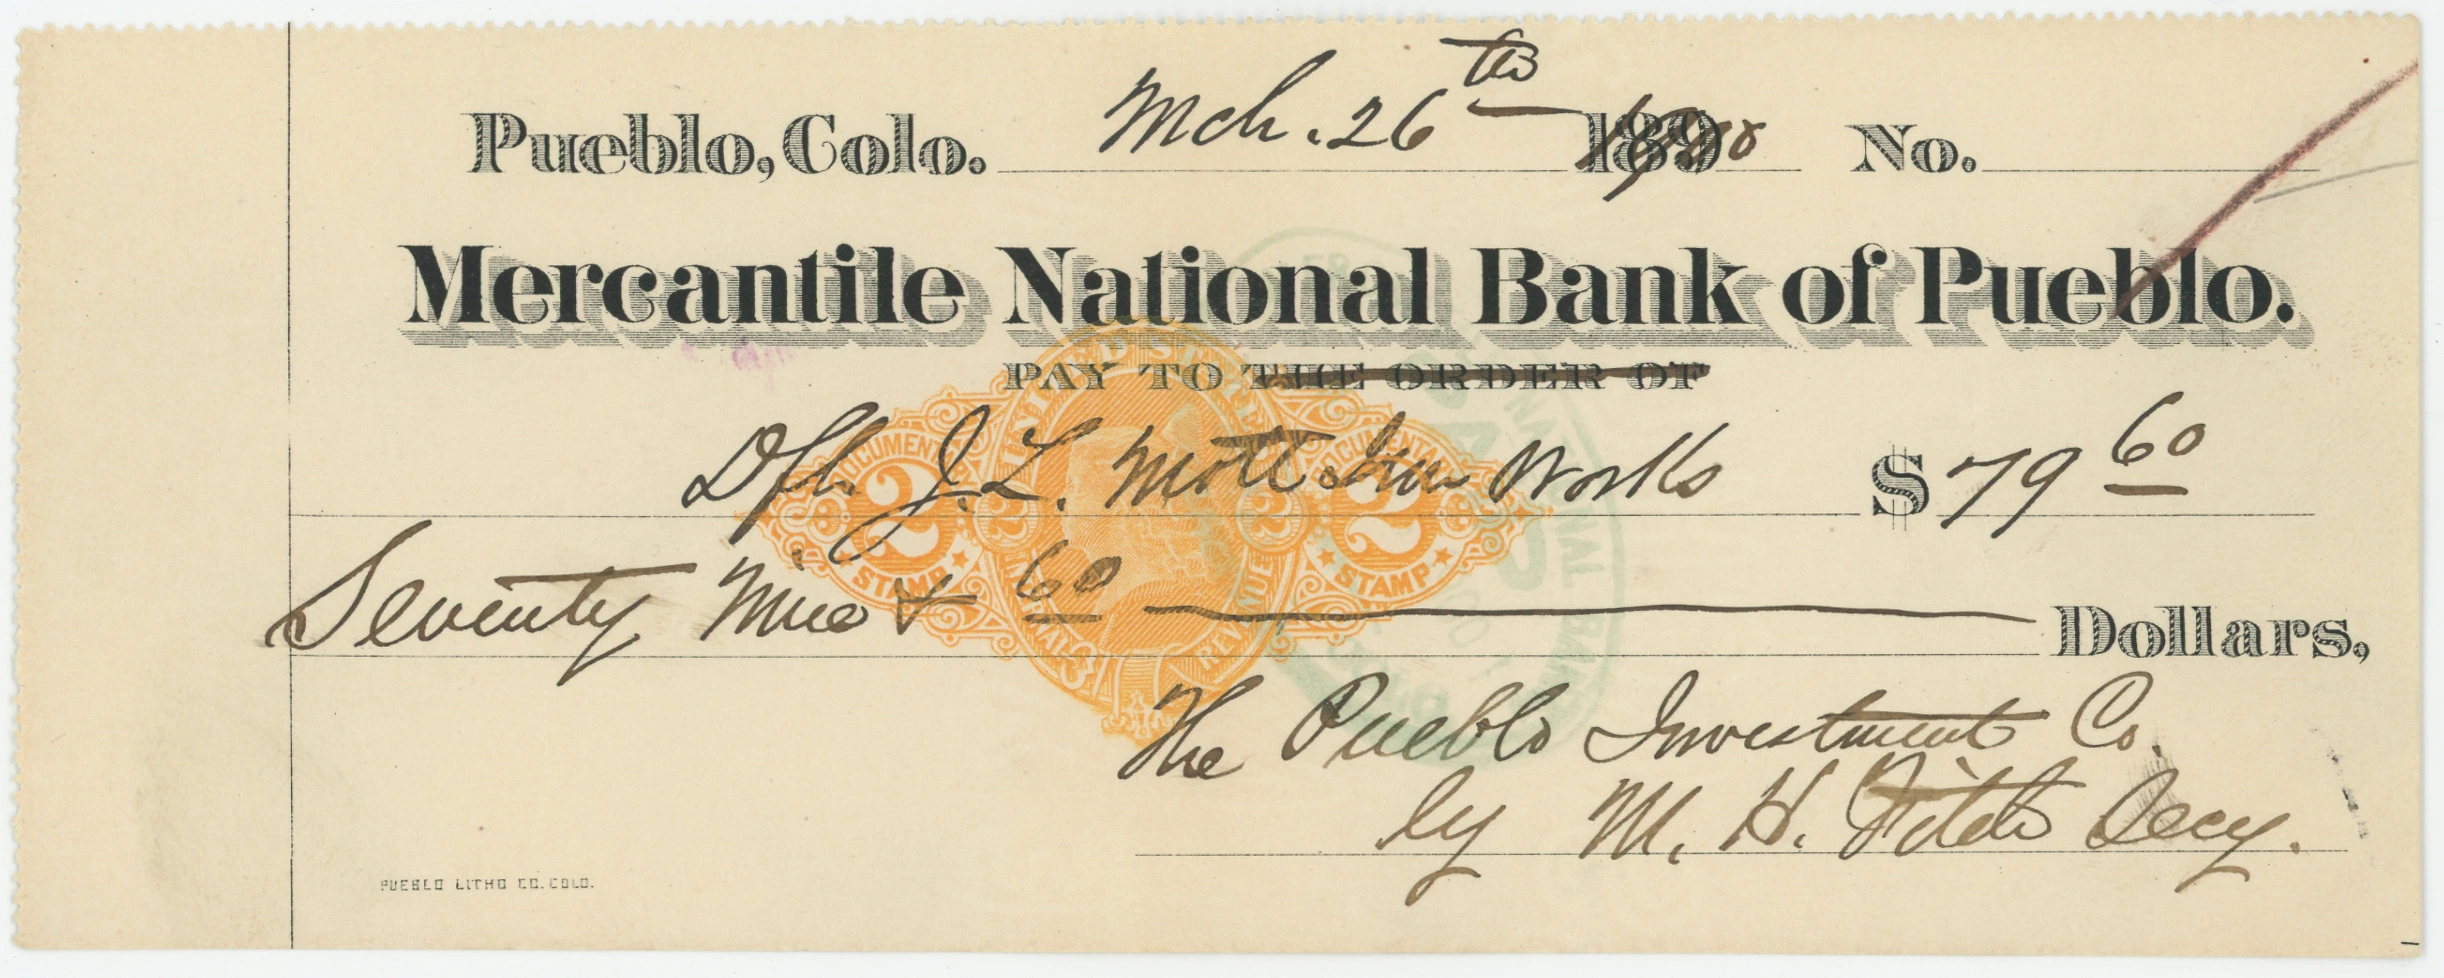 Pueblo, Colo. Mch. 26th 1900 No.
Mercantile National Bank of Pueblo.
PAY TO THE ORDER OF
Dft J. L. Mott Iron Works $79 60
Seventy Nine & 60 Dollars,
UNITED STATES
INTERNAL REVENUE
DOCUMENTARY 2 STAMP
2 2
DOCUMENTARY 2 STAMP
NATIONAL BANK
The Pueblo Investment Co.
by M. H. Fitch Secy.
PUEBLO LITHO CO. COLO.